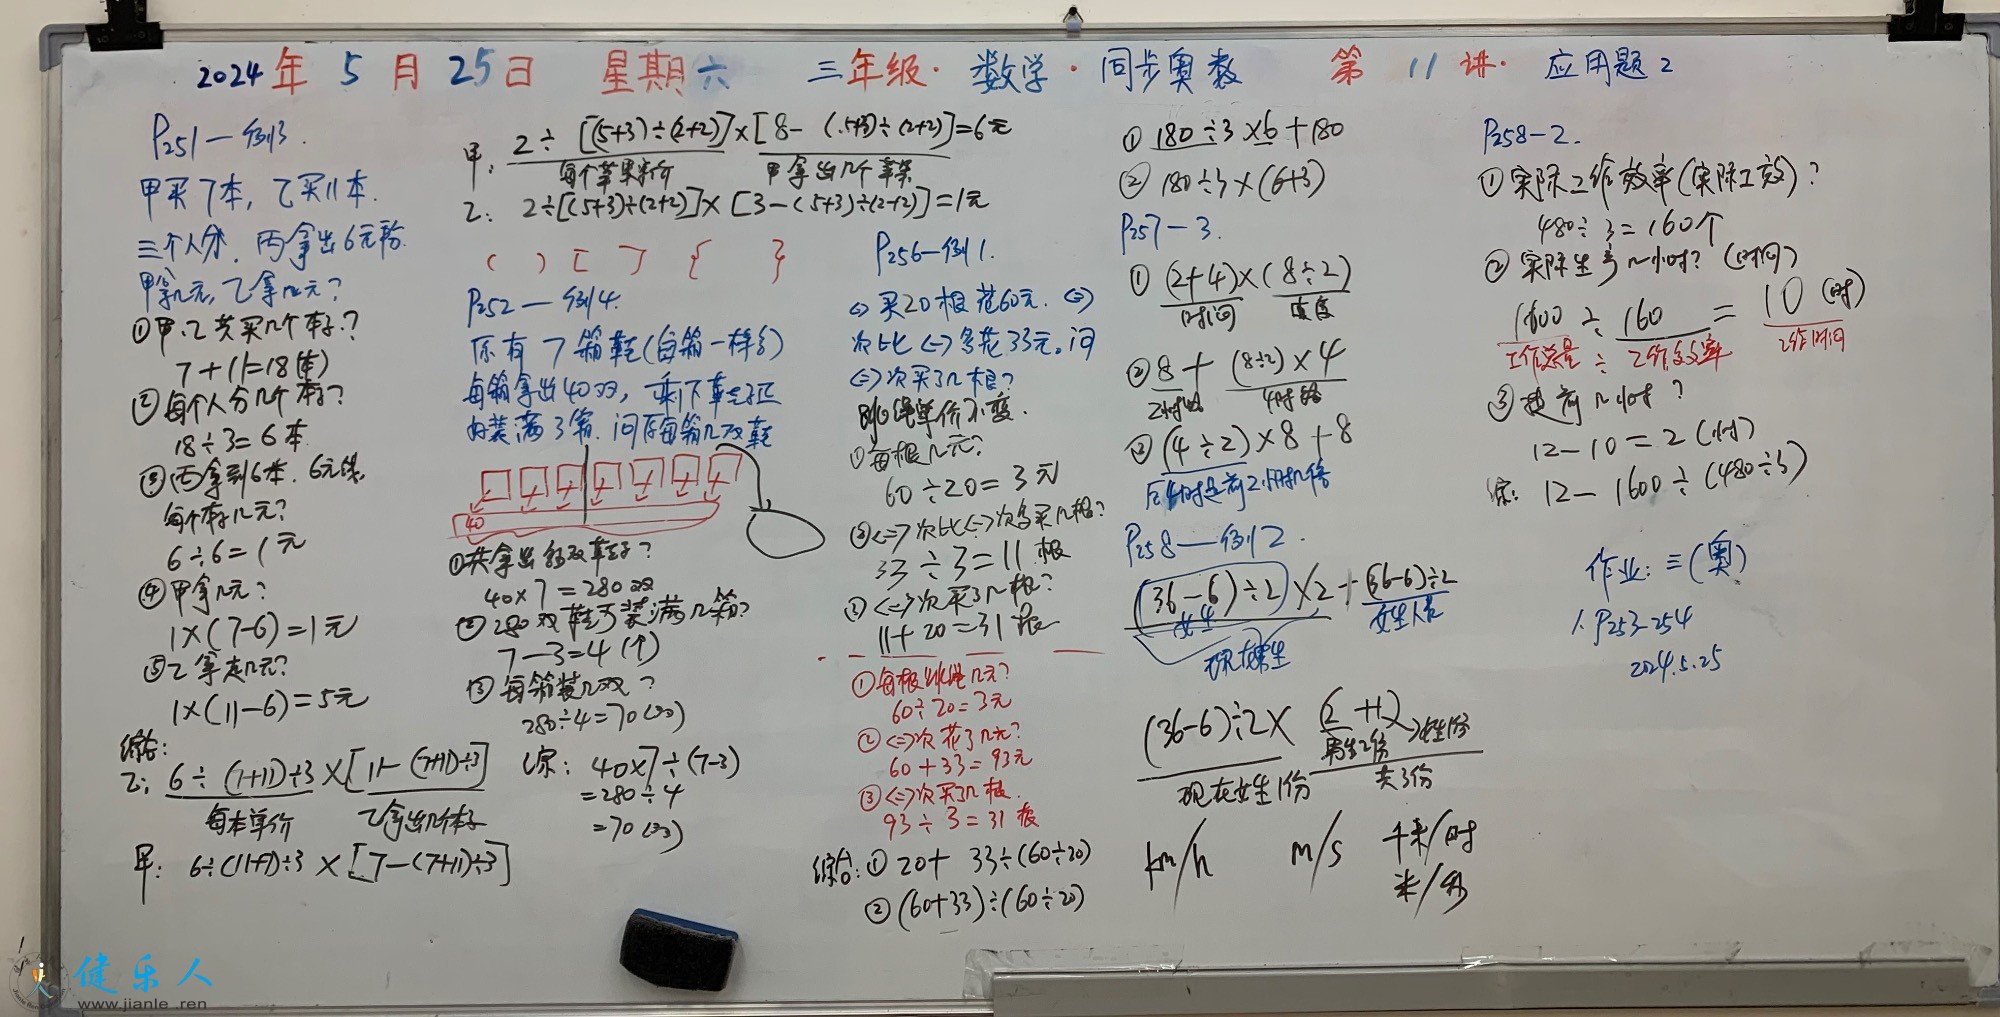 2024年 5月 25日 星期六 三年级·数学·同步奥数 第 11 讲· 应用题2
P251—例3.
甲买7本，乙买11本.
三个人分. 丙拿出6元龄.
甲拿几元，乙拿几元？
①甲、乙共买几个本子？
7+11=18(本)
②每个人分几个本子？
18÷3=6本
③丙拿到6本. 6元钱.
每个本子几元？
6÷6=1元
④甲拿几元？
1×(7-6)=1元
⑤乙拿走几元？
1×(11-6)=5元
综合：
乙：6÷(7+11)÷3×[11-(7+11)÷3]
每本单价 乙拿出几个本子
甲：6÷(11+7)÷3×[7-(7+11)÷3]
甲：2÷[(5+3)÷(2+2)]×[8-(5+3)÷(2+2)]=6元
每个苹果单价 甲拿出几个苹果
乙：2÷[(5+3)÷(2+2)]×[3-(5+3)÷(2+2)]=1元
( ) [ ] { }
P252—例4.
原有7箱鞋(每箱一样多)
每箱拿出40双，乘下鞋子正
好装满3箱. 问原每箱几双鞋
40
①共拿出多少双鞋子？
40×7=280双
②280双鞋可装满几箱？
7-3=4(个)
③每箱装几双？
280÷4=70(双)
综：40×7÷(7-3)
=280÷4
=70(双)
P256—例1.
<一>买20根花60元. <二>
次比<一>多花33元。问
<二>次买了几根？
跳绳单价不变.
①每根几元？
60÷20=3元
②<二>次比<一>次多买几根？
33÷3=11根
③<二>次买了几根？
11+20=31根
①每根跳绳几元？
60÷20=3元
②<二>次花了几元？
60+33=93元
③<二>次买了几根.
93÷3=31根
综合：①20+33÷(60÷20)
②(60+33)÷(60÷20)
①180÷3×6+180
②180÷3×(6+3)
P257—3.
①(2+4)×(8÷2)
时间 速度
②8+(8÷2)×4
2小时路 4时路
③(4÷2)×8+8
后4时是前2小时几倍
P258—例2.
(36-6)÷2×2+(36-6)÷2
女生 女生人数
现在男生
(36-6)÷2×(2+1)→女生1份
男生2份
现在女生1份 共3份
km/h m/s 千米/时
米/秒
P258-2.
①实际工作效率(实际工效)？
480÷3=160个
②实际生产几小时？(时间)
1600÷160=10(时)
工作总量÷工作效率 工作时间
③提前几小时？
12-10=2(小时)
综：12-1600÷(480÷3)
作业：三(奥)
1.P253-254
2024.5.25
健乐人
www.jianle.ren